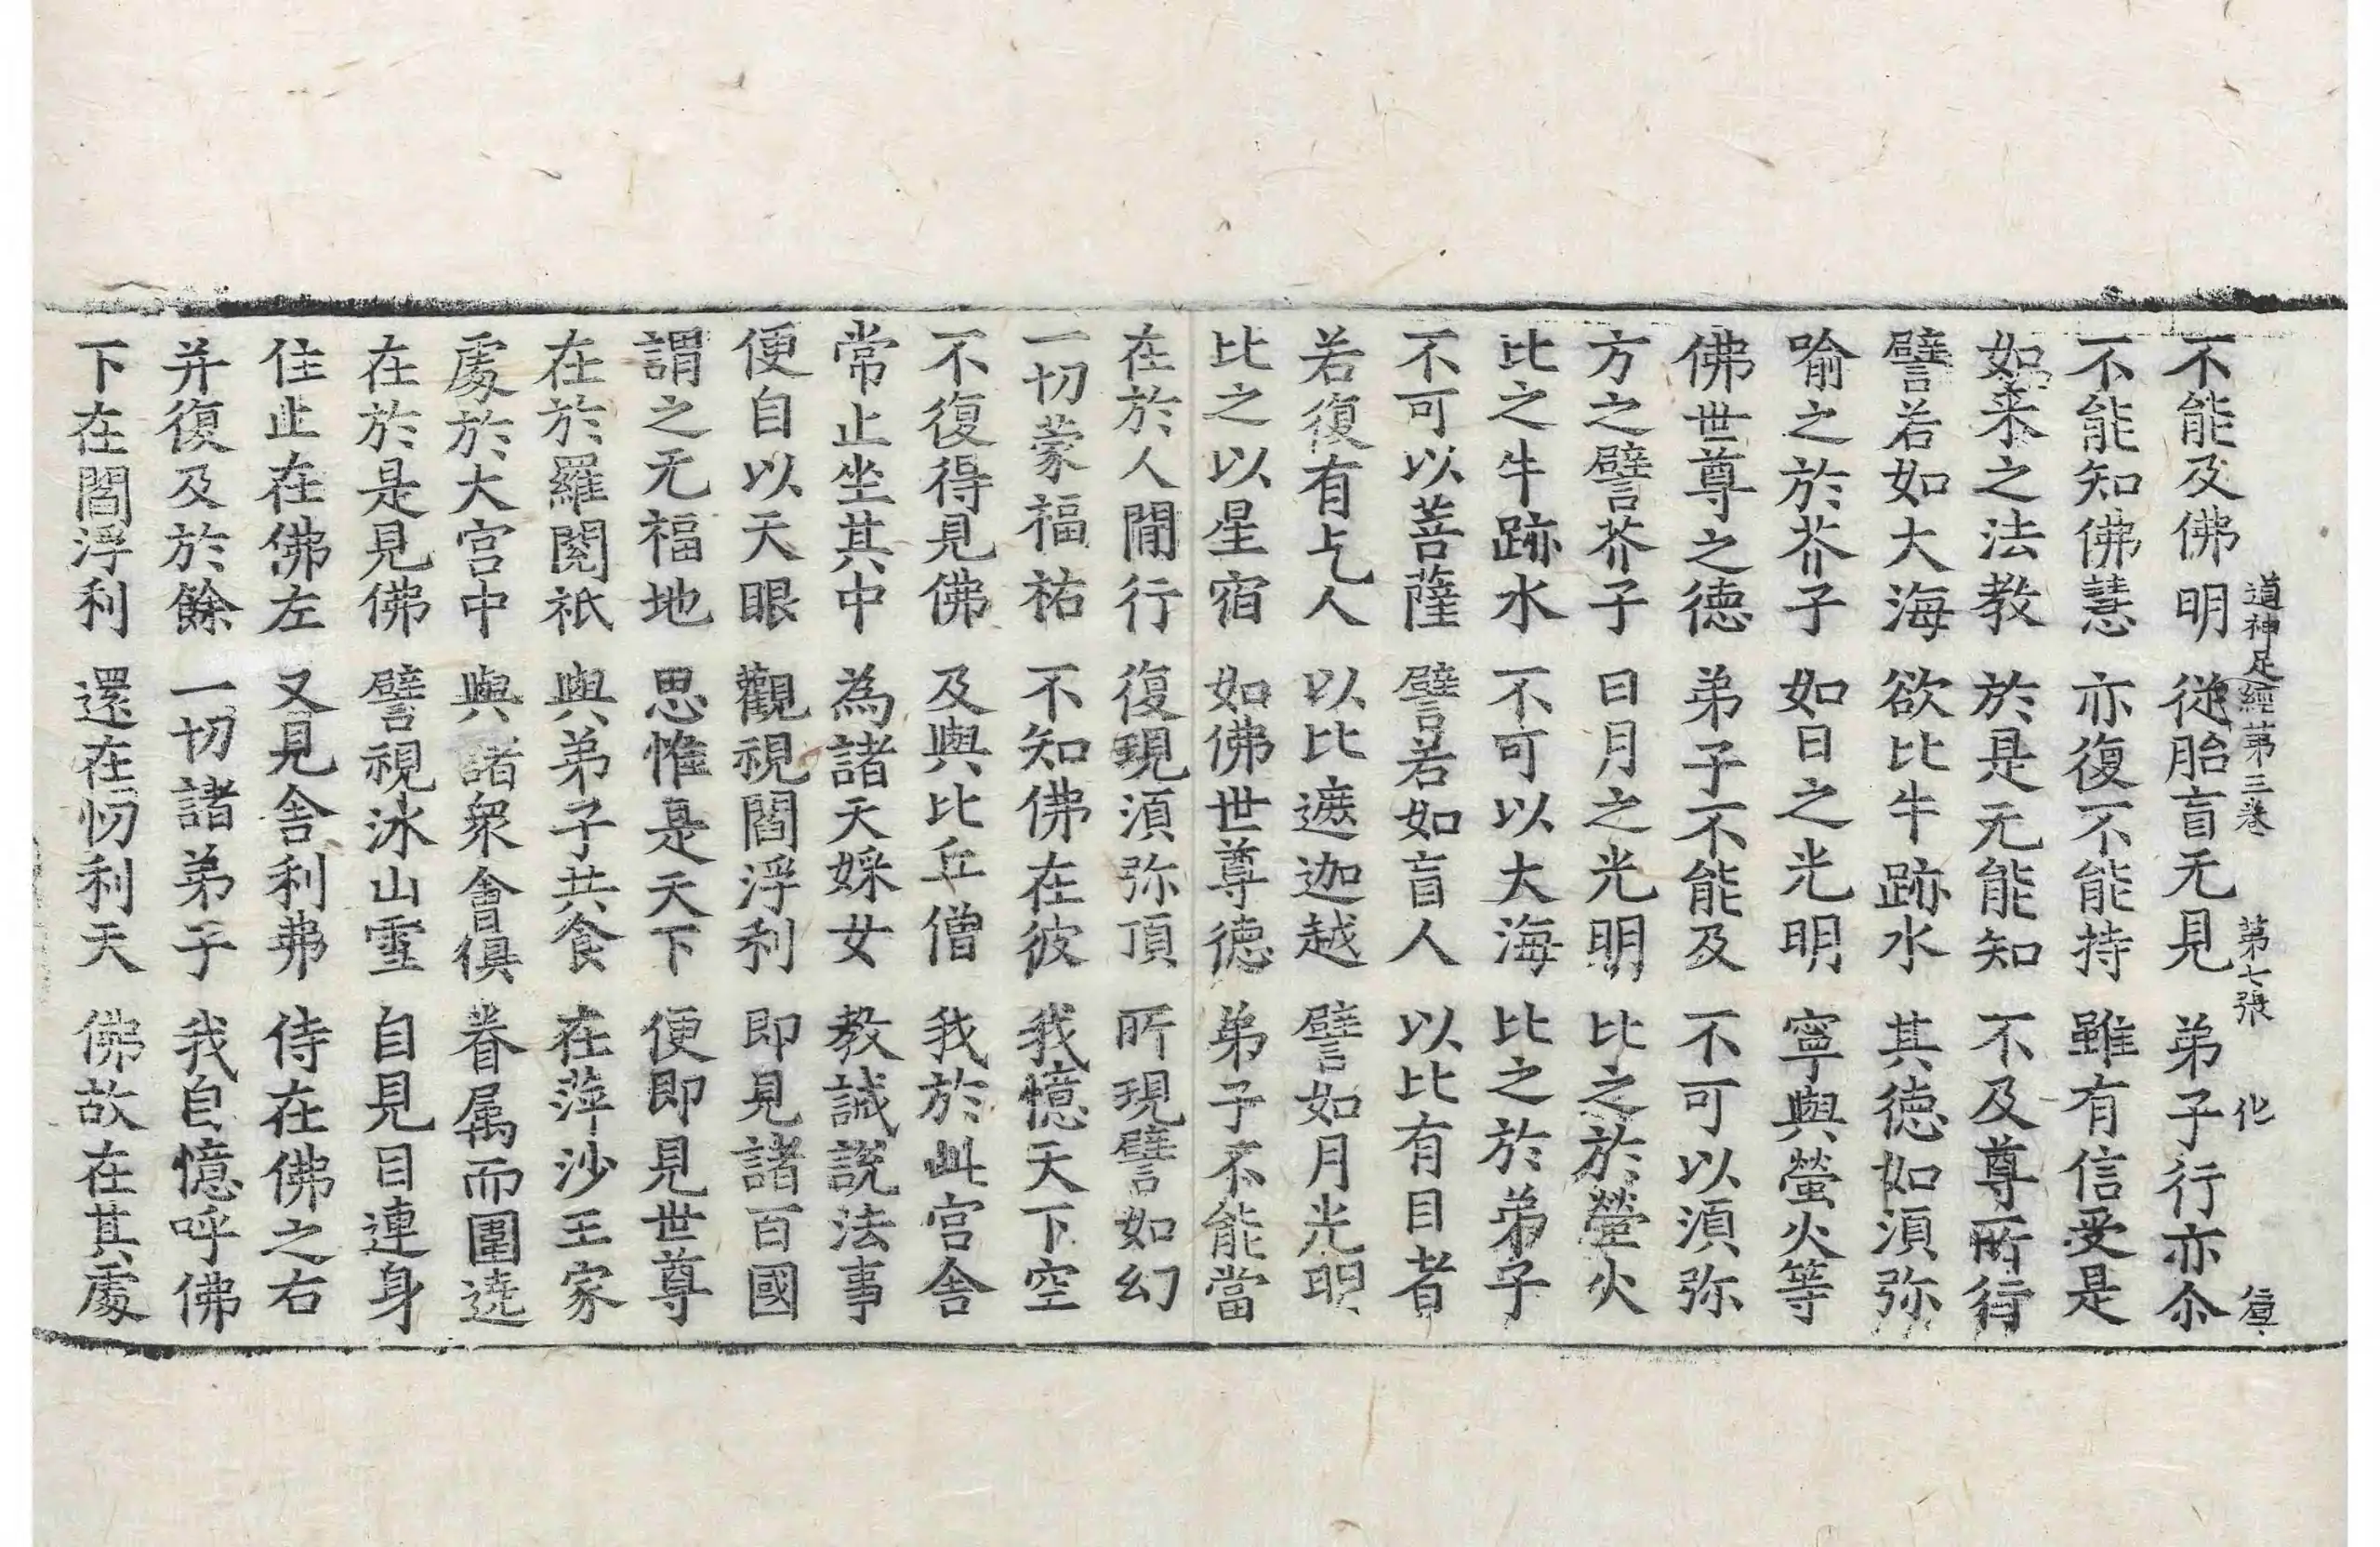 不能及佛明 從胎盲无見 弟子行亦尒
道神足經第三卷 第七張 化
不能知佛慧 亦復不能持 雖有信受是
如来之法教 於是无能知 不及尊所行
譬若如大海 欲比牛跡水 其德如須弥
喻之於芥子 如日之光明 寧與螢火等
佛世尊之德 弟子不能及 不可以須弥
方之譬芥子 日月之光明 比之於螢火
比之牛跡水 不可以大海 比之於弟子
不可以菩薩 譬若如盲人 以比有目者
若復有乞人 以比遮迦越 譬如月光明
比之以星宿 如佛世尊德 弟子不能當
在於人閒行 復現須弥頂 所現譬如幻
一切蒙福祐 不知佛在彼 我憶天下空
不復得見佛 及與比丘僧 我於此宮舍
常止坐其中 為諸天婇女 教誡說法事
便自以天眼 觀視閻浮利 即見諸百國
謂之无福地 思惟是天下 便即見世尊
在於羅閱祇 與弟子共食 在蓱沙王家
處於大宮中 與諸衆會俱 眷属而圍遶
在於是見佛 譬視冰山雪 自見目連身
住止在佛左 又見舍利弗 侍在佛之右
并復及於餘 一切諸弟子 我自憶呼佛
下在閻浮利 還在忉利天 佛故在其處